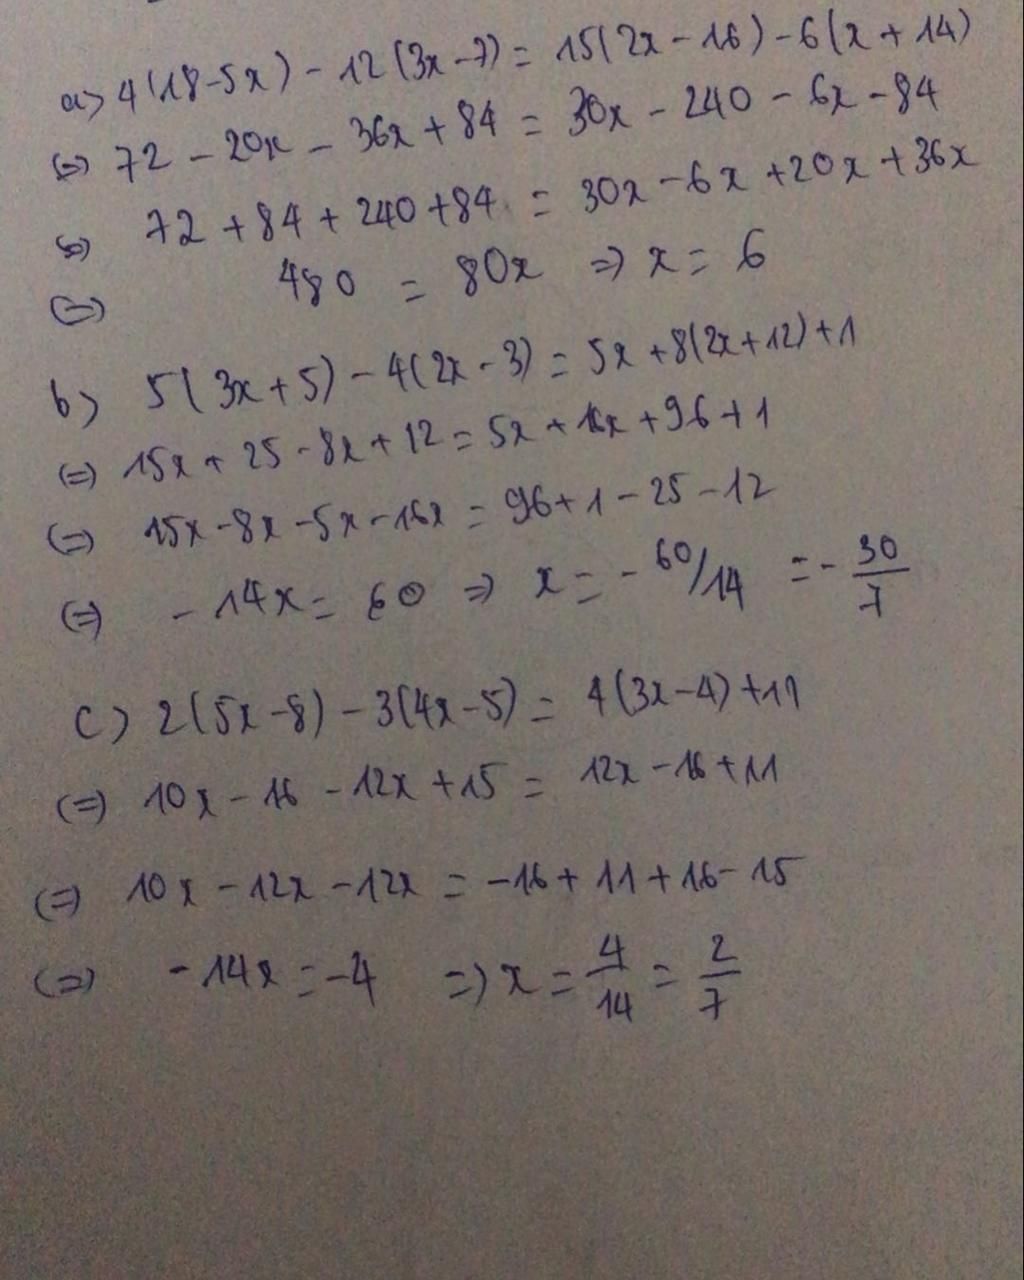 a> 4(18-5x) - 12(3x-7) = 15(2x-16) - 6(x+14)
(=) 72 - 20x - 36x + 84 = 30x - 240 - 6x - 84
(=) 72 + 84 + 240 + 84 = 30x - 6x + 20x + 36x
(=) 480 = 80x => x = 6
b> 5(3x+5) - 4(2x-3) = 5x + 8(2x+12) + 1
(=) 15x + 25 - 8x + 12 = 5x + 16x + 96 + 1
(=) 15x - 8x - 5x - 16x = 96 + 1 - 25 - 12
(=) - 14x = 60 => x = - 60/14 = - 30/7
c> 2(5x-8) - 3(4x-5) = 4(3x-4) + 11
(=) 10x - 16 - 12x + 15 = 12x - 16 + 11
(=) 10x - 12x - 12x = -16 + 11 + 16 - 15
(=) - 14x = -4 => x = 4/14 = 2/7